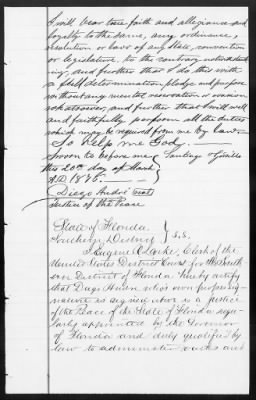 I will bear true faith and allegiance and
loyalty to the same, any ordinance,
resolution or law of any State, convention
or legislature, to the contrary notwithstand-
ing, and further that I do this with
a full determination, pledge and purpose
without any mental reservation or evasion
whatsoever, and further that I will well
and faithfully perform all the duties
which may be required from me by law.
So help me God.—
Sworn to before me
this 20th day of March
A.D. 1875.
Diego André
Justice of the Peace
State of Florida
Southern District } S.S.
I, Eugene O. Locke, Clerk of the
United States District Court for the South-
ern District of Florida hereby certify
that who's own proper sig-
nature is signed above is a Justice
of the Peace of the State of Florida regu-
larly appointed by the Governor
of Florida and duly qualified by
law to administer oaths and